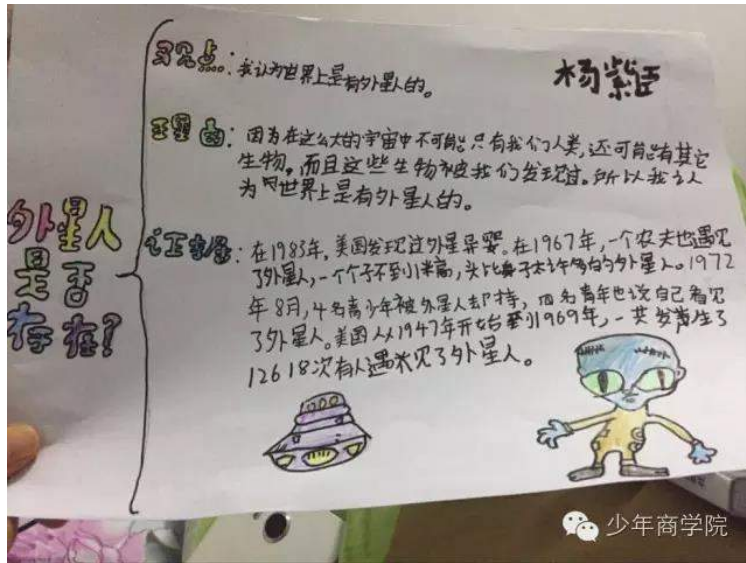 外星人
是否
存在?
观点:我认为世界上是有外星人的。
杨紫
理由:因为在这么大的宇宙中不可能只有我们人类,还可能有其它
生物,而且这些生物被我们发现过。所以我认
为世界上是有外星人的。
证据:在1983年,美国发现过外星异婴。在1967年,一个农夫也遇见
了外星人,一个个子不到1米高,头比鼻子大许多的外星人。1972
年8月,4名青少年被外星人劫持,四名青年也说自己看见
了外星人。美国从1947年开始至1969年,一共发生了
12618次有人遇见了外星人。
少年商学院